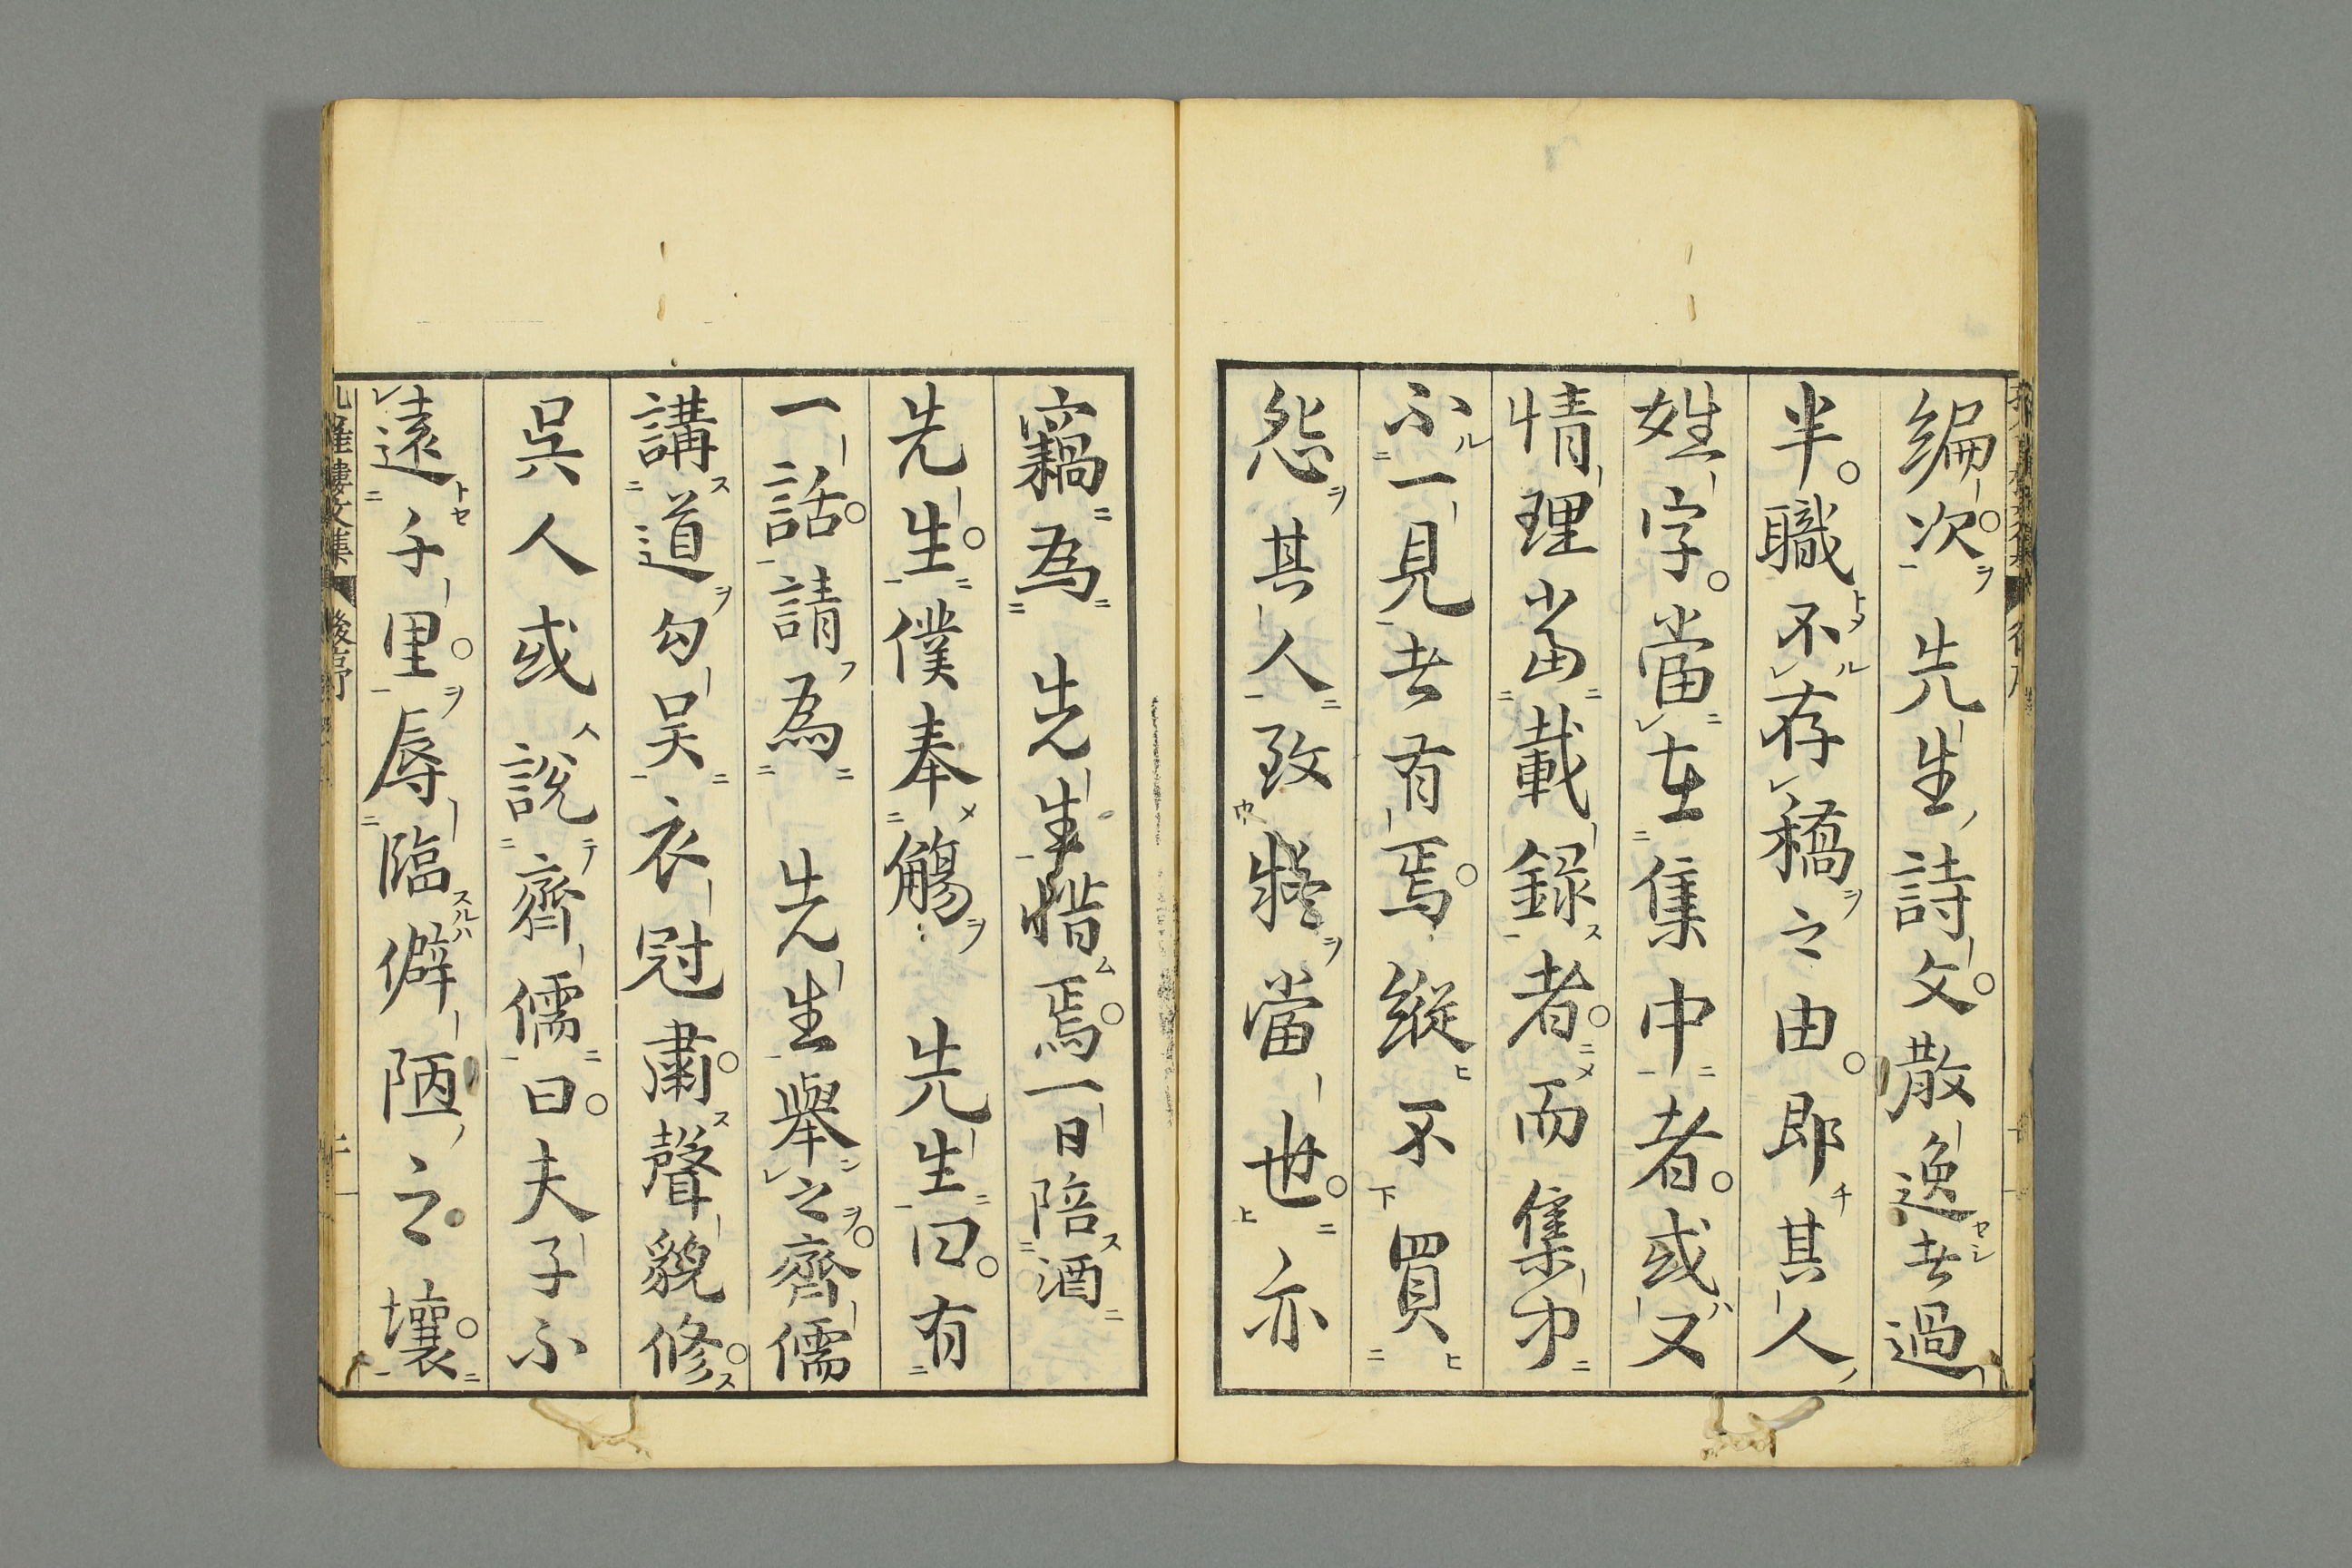 編次。先生詩文。散逸去過
半。職不存稿之由。即其人
姓字。當在集中者。或又
情理當載録者。而集中
不一見去有焉。縦不買
怨其人致疑當世。亦
竊為先生惜焉。一日陪酒
先生。僕奉觴先生曰。有
一話。請為先生舉之。齊儒
講道勾吴。衣冠肅。聲貌修。
呉人或說齊儒曰。夫子不
遠千里。辱臨僻陋之壤。
樓文集 後序